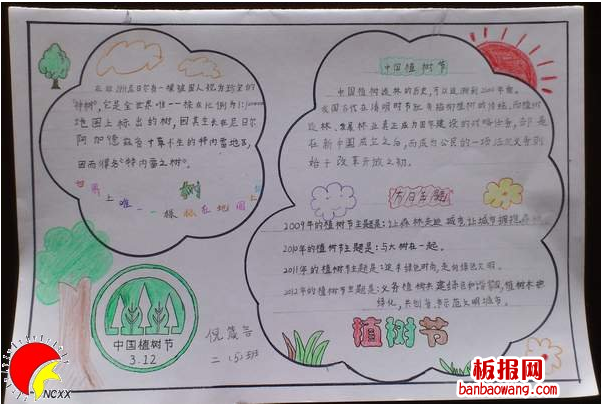 在非洲尼日尔有一棵被国人视为珍宝的
"神树",它是全世界唯一一棵在比例为1:
地图上标出的树,因其生长在尼日尔
阿加德兹省寸草不生的特内雷地区,
因而得名"特内雷之树"。
世界上唯一一棵标在地图上
树
中国植树节
中国植树造林的历史,可以追溯到
我国古代在清明时节就有插柳植树的传统,而植树
造林、发展林业真正成为国家建设的战略任务,却是
在新中国成立之后,而成为公民的一项法定义务则
始于改革开放之初。
节日主题
2009年的植树节主题是:让森林走进城市,让城市拥抱森林
2010年的植树节主题是:与大树在一起。
2011年的植树节主题是:追求绿色时尚,走向绿色文明。
2012年的植树节主题是:义务植树共建绿色和谐家园,植树木
绿化,共创
植树节
中国植树节
3.12
倪
二(5)班
NCXX
板报网
banbaowang.com